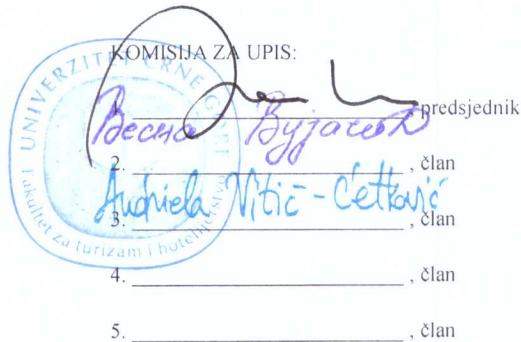 KOMISIJA ZA UPIS:
1. , predsjednik
Весна Вујачић
2. , član
Andriela Vitić-Ćetković
3. , član
4. , član
5. , član
UNIVERZITET CRNE GORE
Fakultet za turizam i hotelijerstvo